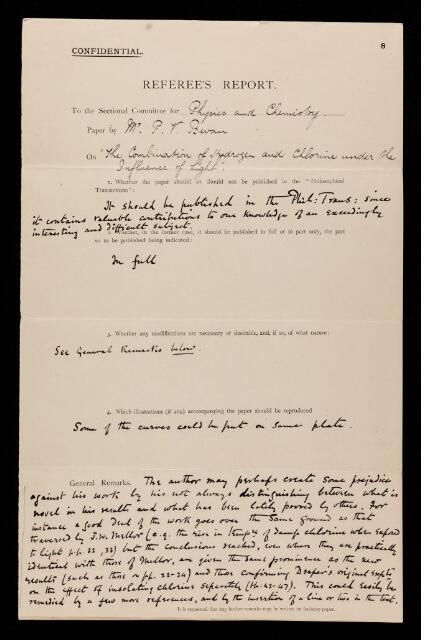 CONFIDENTIAL.
8
REFEREE'S REPORT.
To the Sectional Committee for Physics and Chemistry
Paper by Mr P. V. Bevan
On "The Combination of Hydrogen and Chlorine under the
Influence of Light".
1. Whether the paper should or should not be published in the "Philosophical
Transactions":
It should be published in the Phil: Trans: since
it contains valuable contributions to our knowledge of an exceedingly
interesting and difficult subject.
2. Whether, in the former case, it should be published in full or in part only, the part
so to be published being indicated:
In full
3. Whether any modifications are necessary or desirable, and, if so, of what nature:
See General Remarks below.
4. Which illustrations (if any) accompanying the paper should be reproduced
Some of the curves could be put on same plate.
General Remarks. The author may perhaps create some prejudice
against his work by his not always distinguishing between what is
novel in his results and what has been lately proved by others. For
instance a good deal of the work goes over the same ground as that
traversed by J.W. Mellor (e.g. the rise in temp of damp chlorine when exposed
to light pp. 22, 23) but the conclusions reached, even where they are practically
identical with those of Mellor, are given the same prominence as the new
results (such as those on pp. 22-24) and those confirming Draper's original expts
on the effect of insolating chlorine separately (pp. 42-47). This could easily be
remedied by a few more references, and by the insertion of a line or two in the text.
It is requested that any further remarks may be written on foolscap paper.